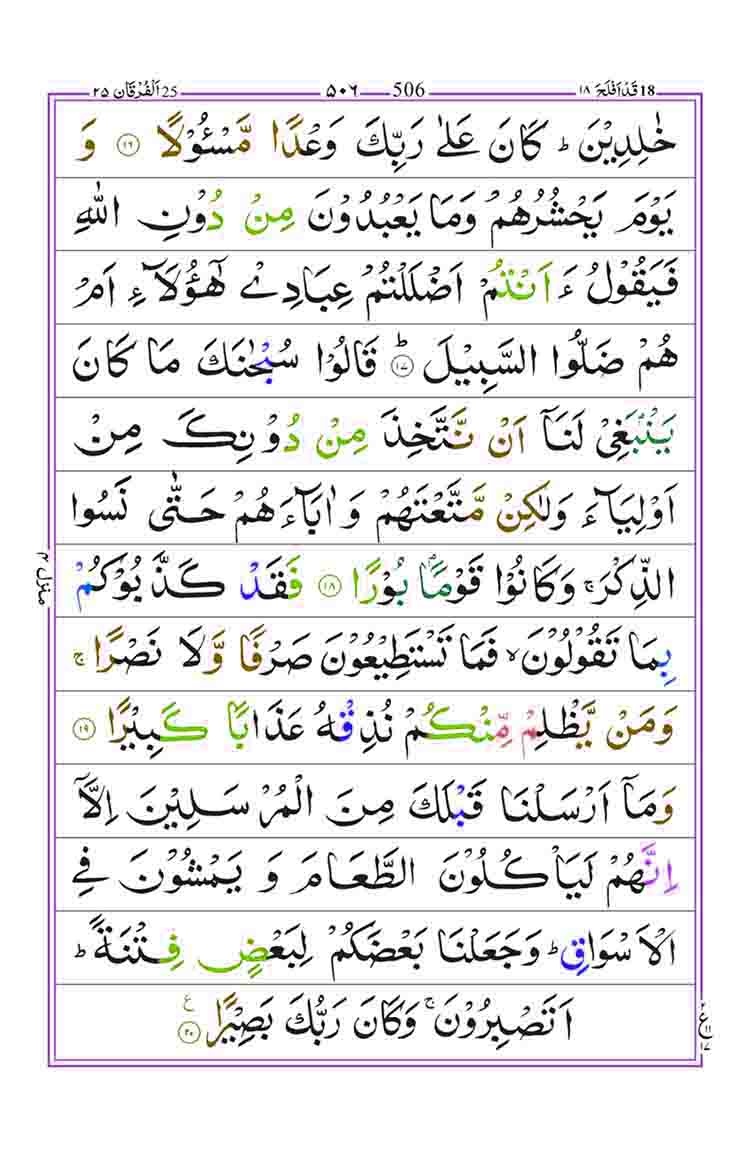 18 قَدْ اَفْلَحَ ۱۸ 506 ۵۰۶ 25 اَلْفُرْقَان ۲۵
خٰلِدِيْنَ ؕ كَانَ عَلٰى رَبِّكَ وَعْدًا مَّسْـُٔوْلًا ۝۱۶ وَ
يَوْمَ يَحْشُرُهُمْ وَمَا يَعْبُدُوْنَ مِنْ دُوْنِ اللّٰهِ
فَيَقُوْلُ ءَاَنْتُمْ اَضْلَلْتُمْ عِبَادِيْ هٰٓؤُلَآءِ اَمْ
هُمْ ضَلُّوا السَّبِيْلَ ؕ۝۱۷ قَالُوْا سُبْحٰنَكَ مَا كَانَ
يَنْۢبَغِيْ لَنَاۤ اَنْ نَّتَّخِذَ مِنْ دُوْنِكَ مِنْ
اَوْلِيَآءَ وَلٰكِنْ مَّتَّعْتَهُمْ وَاٰبَآءَهُمْ حَتّٰى نَسُوا
الذِّكْرَ ۚ وَكَانُوْا قَوْمًۢا بُوْرًا ۝۱۸ فَقَدْ كَذَّبُوْكُمْ
بِمَا تَقُوْلُوْنَ ۙ فَمَا تَسْتَطِيْعُوْنَ صَرْفًا وَّلَا نَصْرًا ۚ
وَمَنْ يَّظْلِمْ مِّنْكُمْ نُذِقْهُ عَذَابًا كَبِيْرًا ۝۱۹
وَمَاۤ اَرْسَلْنَا قَبْلَكَ مِنَ الْمُرْسَلِيْنَ اِلَّاۤ
اِنَّهُمْ لَيَاْكُلُوْنَ الطَّعَامَ وَ يَمْشُوْنَ فِي
الْاَسْوَاقِ ؕ وَجَعَلْنَا بَعْضَكُمْ لِبَعْضٍ فِتْنَةً ؕ
اَتَصْبِرُوْنَ ۚ وَكَانَ رَبُّكَ بَصِيْرًا ۝۲۰ ع
منزل ۴
۲ ع ۱۱ ۱۷